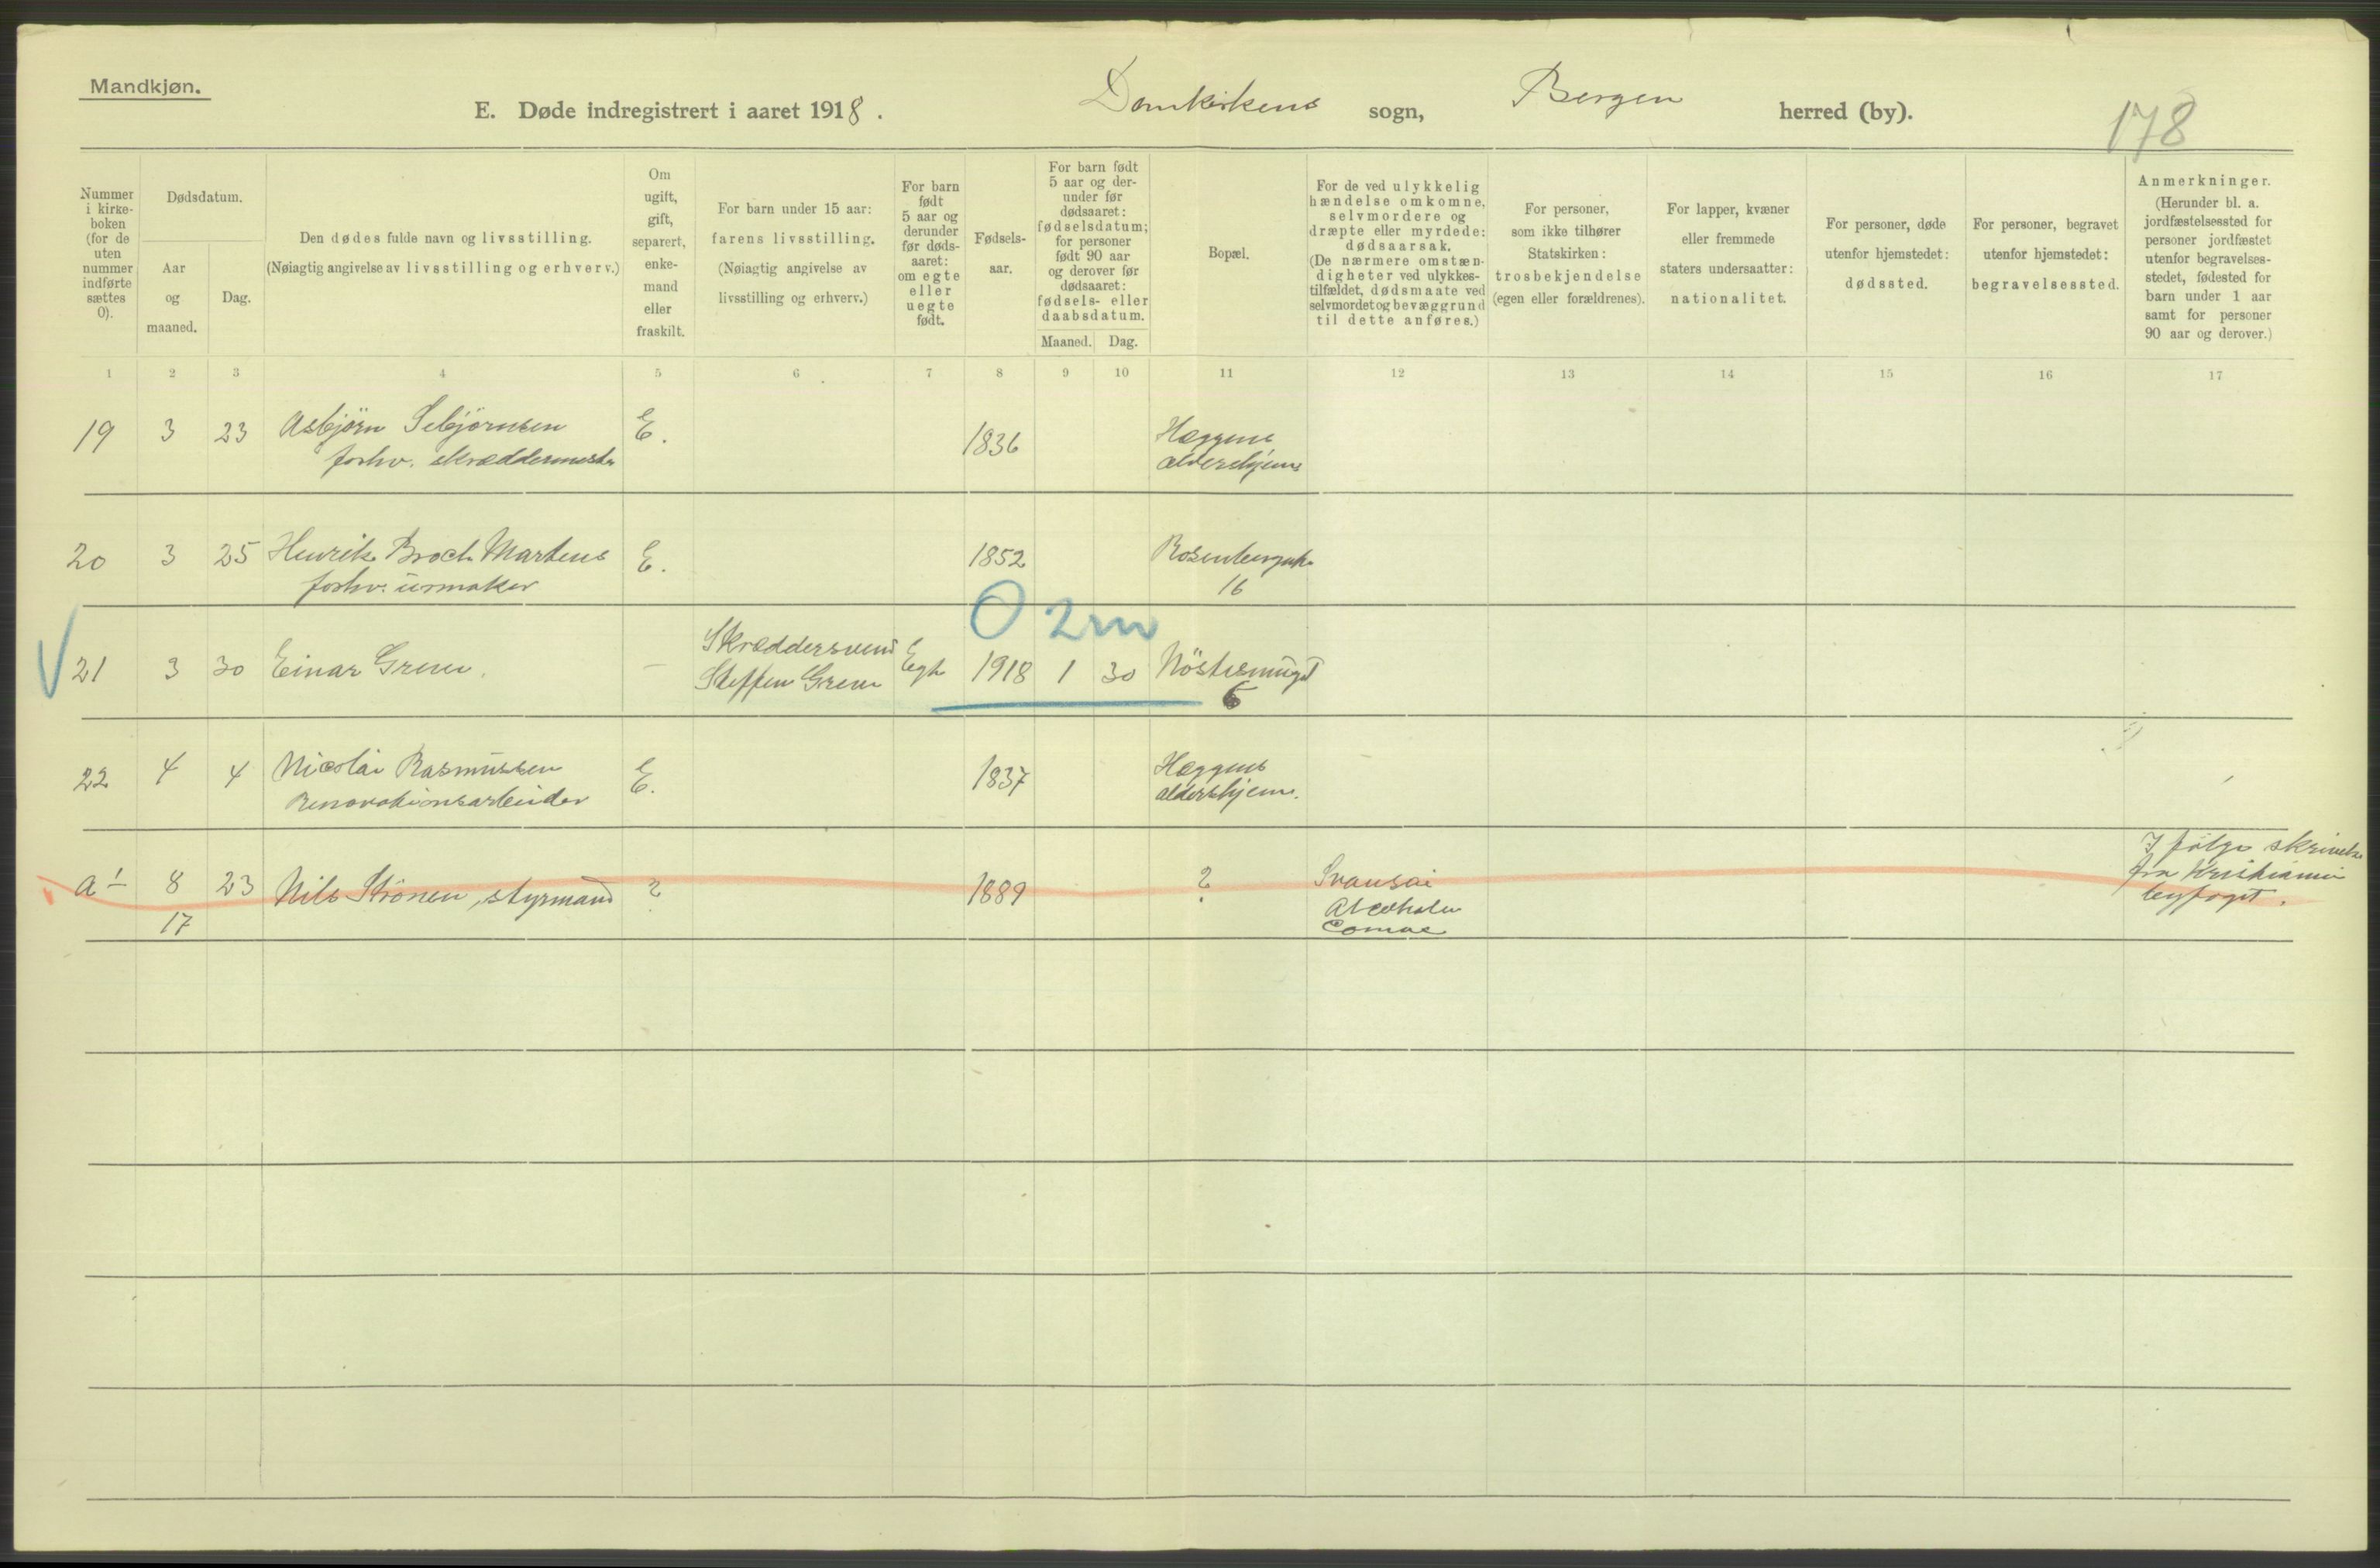 Mandkjøn.
E. Døde indregistrert i aaret 1918. Domkirkens sogn, Bergen herred (by).
178
Nummer i kirke-boken (for de uten nummer indførte sættes 0).
Dødsdatum.
Aar og maaned.
Dag.
Den dødes fulde navn og livsstilling.
(Nøiagtig angivelse av livsstilling og erhverv.)
Om ugift, gift, separert, enke-mand eller fraskilt.
For barn under 15 aar: farens livsstilling. (Nøiagtig angivelse av livsstilling og erhverv.)
For barn født 5 aar og derunder før døds-aaret: om egte eller uegte født.
Fødsels-aar.
For barn født 5 aar og der-under før dødsaaret: fødselsdatum; for personer født 90 aar og derover før dødsaaret: fødsels- eller daabsdatum.
Maaned. Dag.
Bopæl.
For de ved ulykkelig hændelse omkomne, selvmordere og dræpte eller myrdede: dødsaarsak. (De nærmere omstæn-digheter ved ulykkes-tilfældet, dødsmaate ved selvmordet og bevæggrund til dette anføres.)
For personer, som ikke tilhører Statskirken: trosbekjendelse (egen eller forældrenes).
For lapper, kvæner eller fremmede staters undersaatter: nationalitet.
For personer, døde utenfor hjemstedet: dødssted.
For personer, begravet utenfor hjemstedet: begravelsessted.
Anmerkninger. (Herunder bl. a. jordfæstelsessted for personer jordfæstet utenfor begravelses-stedet, fødested for barn under 1 aar samt for personer 90 aar og derover.)
1 2 3 4 5 6 7 8 9 10 11 12 13 14 15 16 17
19 3 23 Asbjörn Sebjörnsen E. 1836 Hæggens
forhv. skræddermester aldershjem
20 3 25 Henrik Broch Martens E. 1852
forhv. urmaker 16
0 2m
21 3 30 Einar Grein. — Skræddersvend Egte 1918 1 30
Steffen Grein 6
22 4 4 Nicolai Rasmussen E. 1837 Hæggens
Renovationsarbeider aldershjem.
a 1 8 23 Nils Strönen, styrmand ? 1889 ?
17
Comae
I følge skrivelse
fra Kristiania
byfoget.